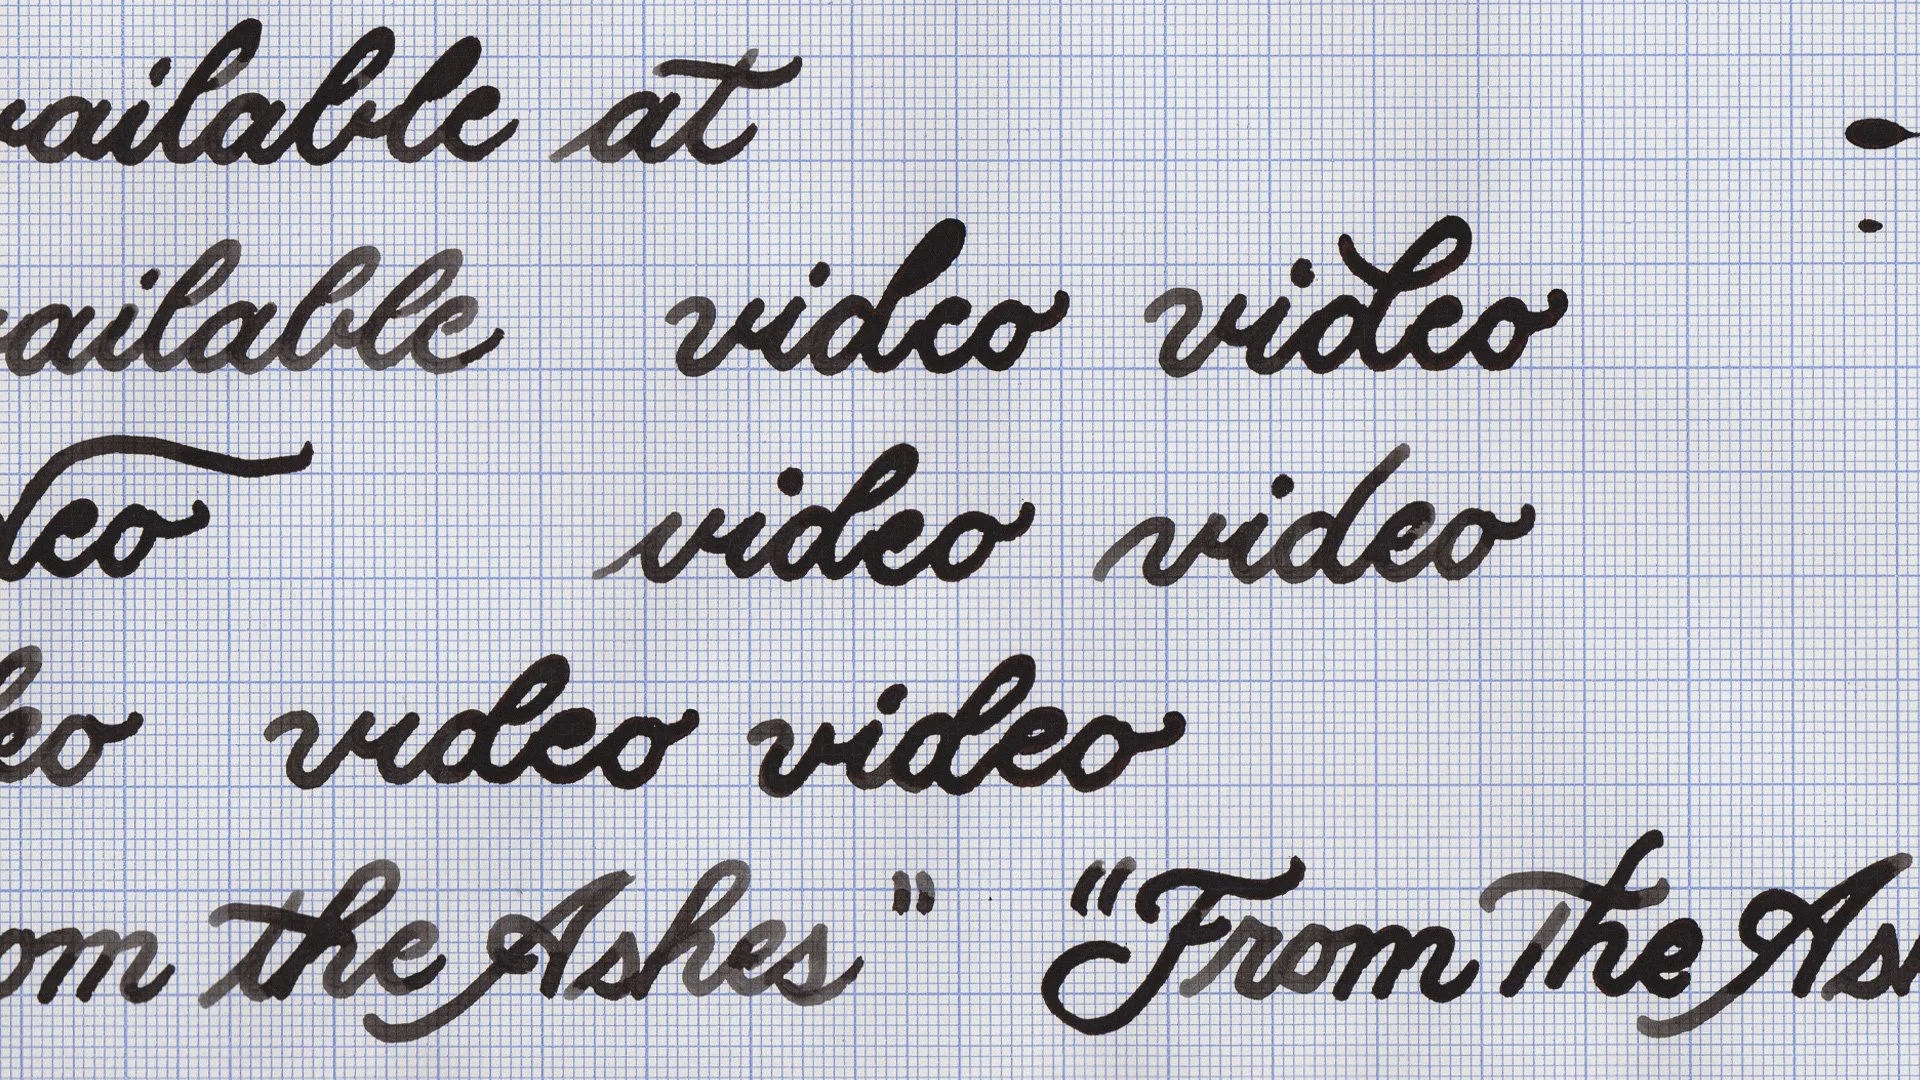 vailable at
vailable video video
deo video video
deo video video
om the Ashes" "From The Ash